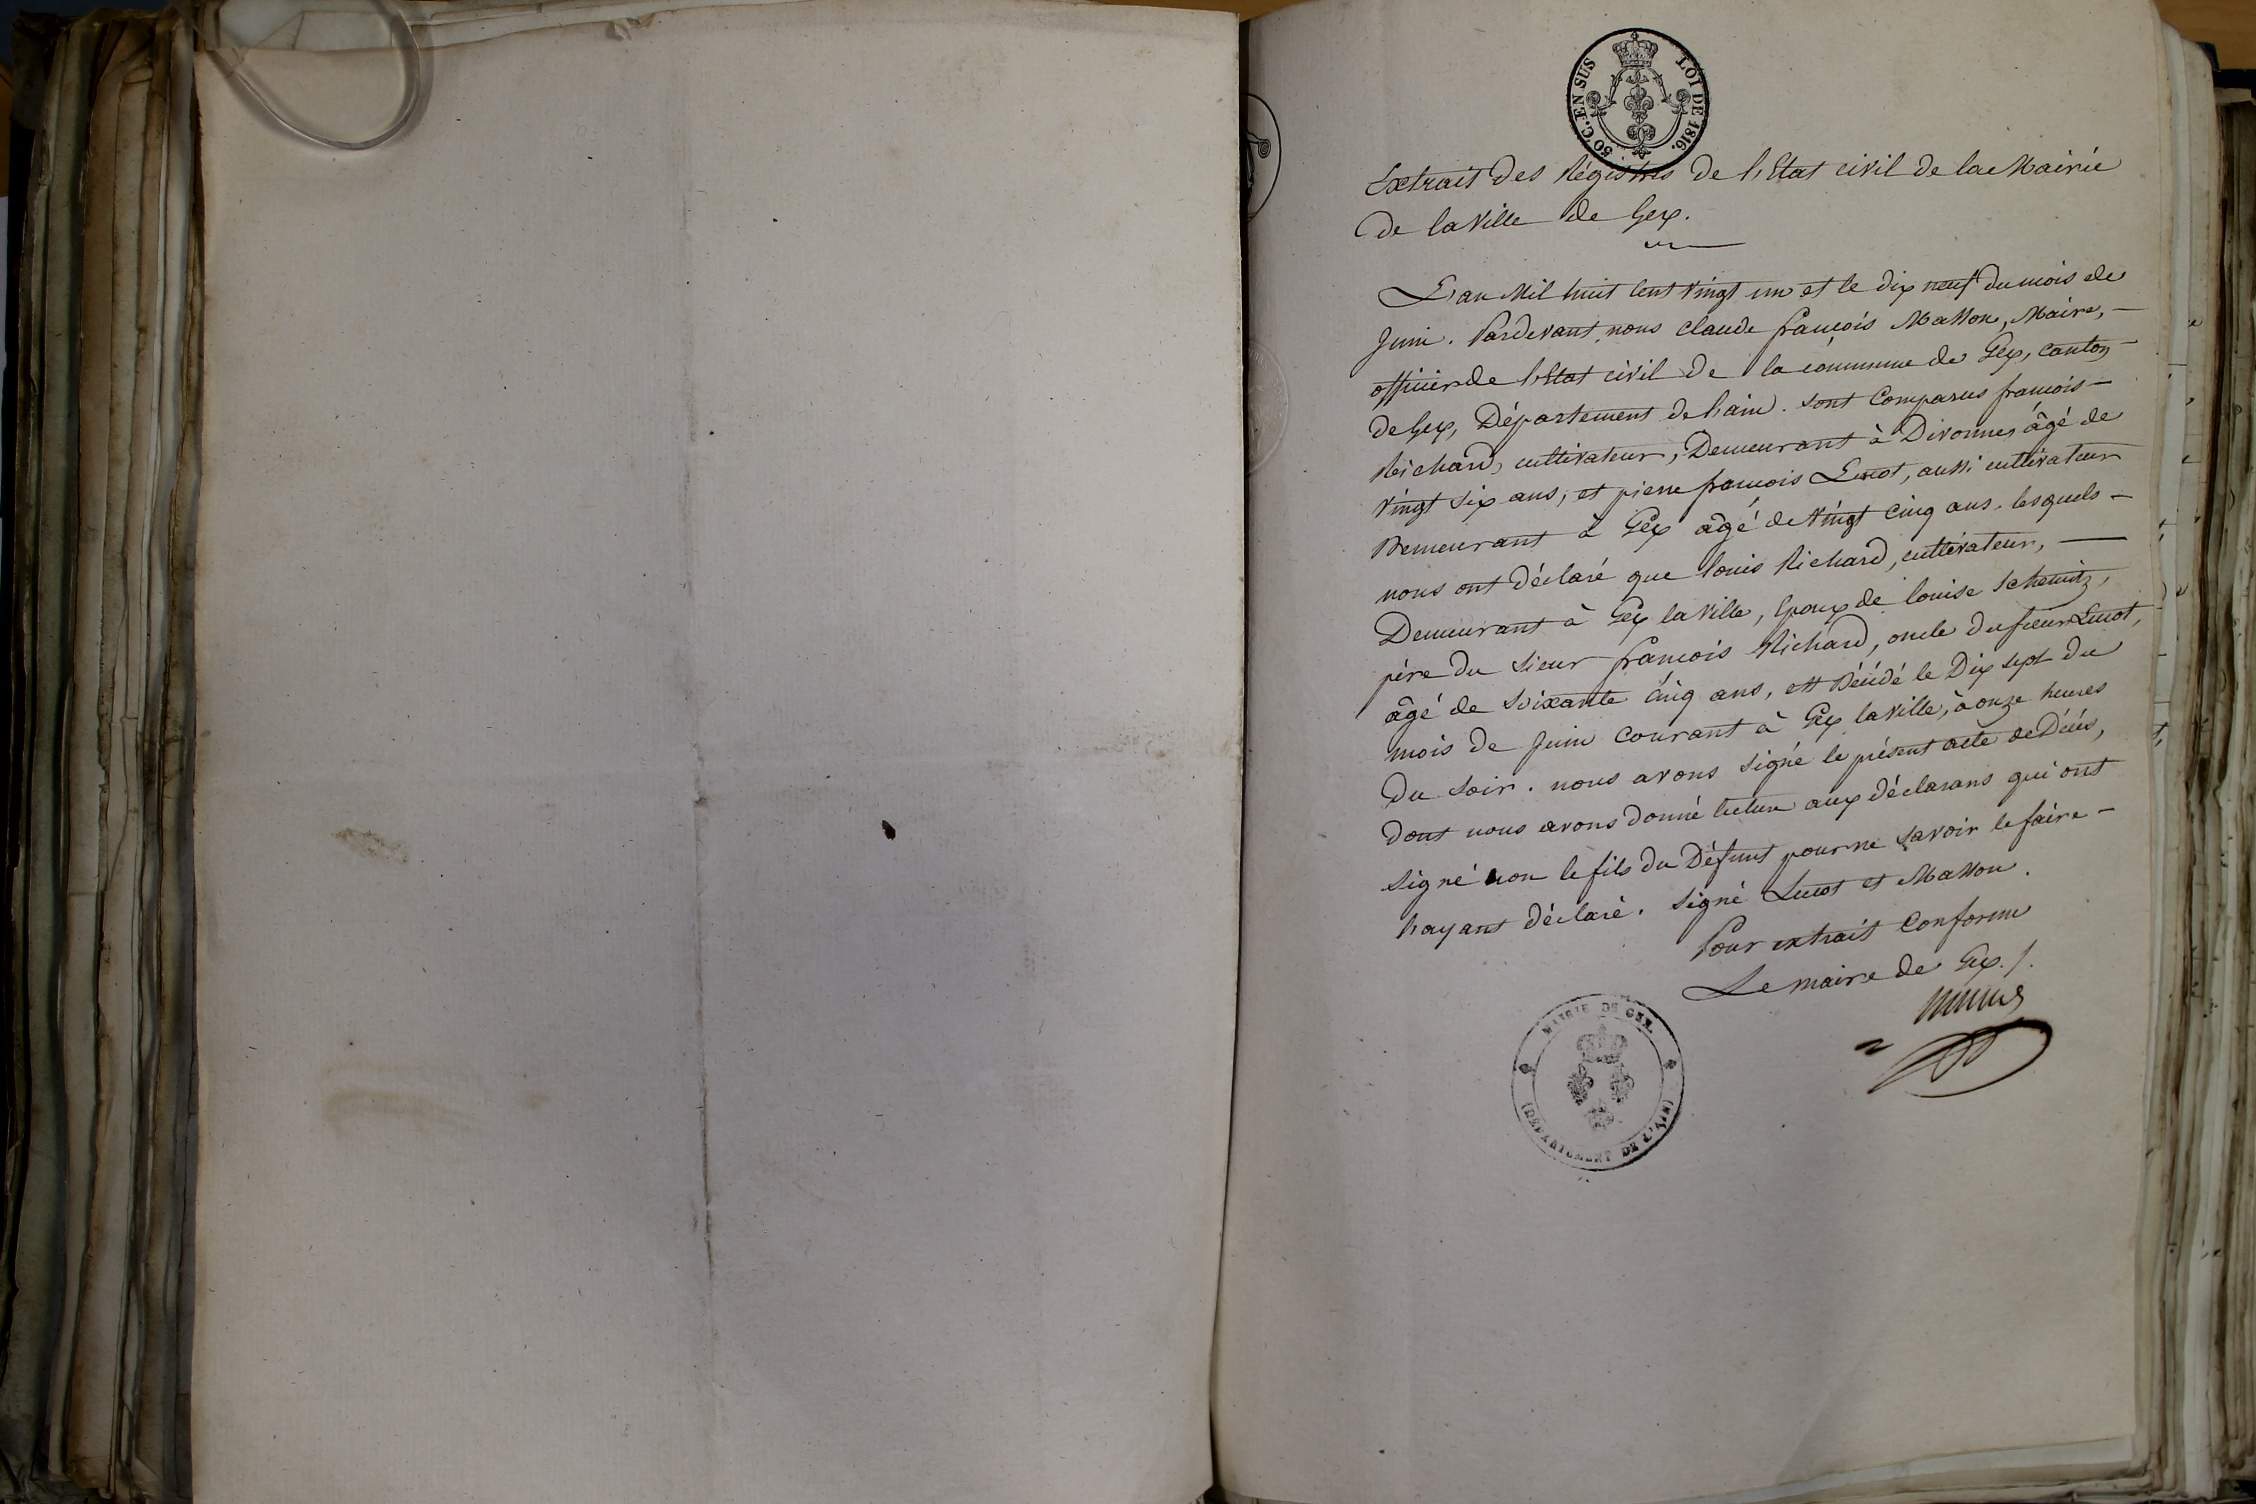 50 C. EN SUS LOI DE 1816.
Extrait des Régistres de l'Etat civil de la Mairie
de la Ville de Gex.
L'an Mil huit cent vingt un et le dix neuf du mois de
Juin. Pardevant nous Claude françois Masson, Maire,
officier de l'Etat civil de la commune de Gex, canton
de Gex, Département de l'ain. sont Comparus françois
Richard, cultivateur, Demeurant à Divonne, âgé de
vingt six ans, et pierre françois aussi cultivateur
Demeurant à Gex âgé de vingt cinq ans. lesquels
nous ont déclaré que louis Richard, cultivateur,
Demeurant à Gex la Ville, Epoux de louise
père du sieur françois Richard, oncle du sieur
âgé de soixante cinq ans, est Décédé le Dix sept du
mois de Juin courant à Gex la Ville, à onze heures
Du soir. nous avons signé le présent acte de Décés,
dont nous avons donné lecture aux déclarans qui ont
signé non le fils du Défunt pour ne savoir le faire
l'ayant déclaré. signé et Masson.
Pour extrait Conforme
Le maire de Gex./.
MAIRIE DE GEX.
(DÉPARTEMENT DE L'AIN)